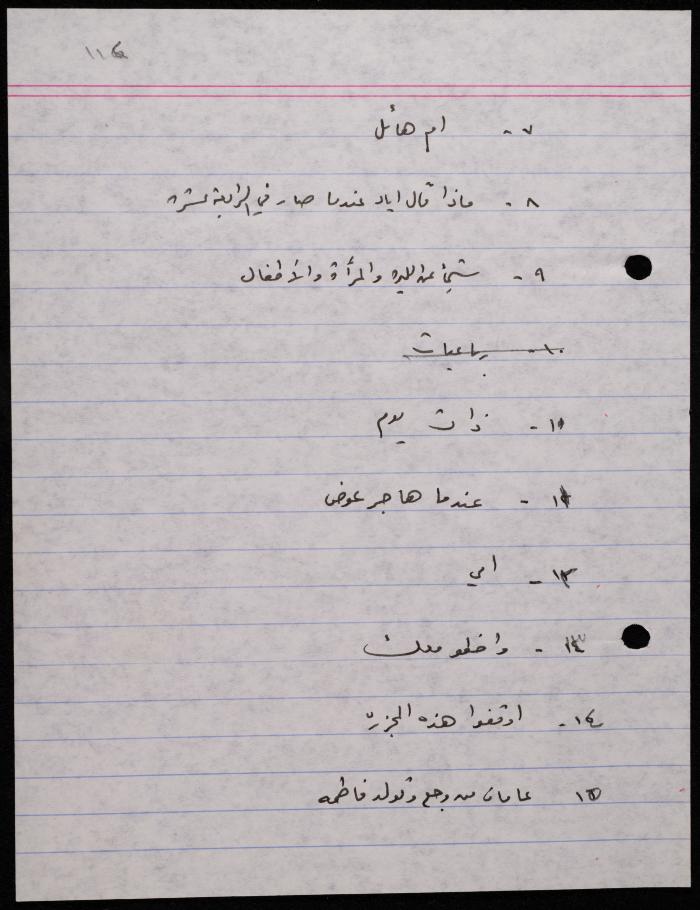 ١١٦
٧ - ام هائل
٨ - ماذا قال اياد عندما صار في الرابعة عشرة
٩ - شيئ عن والمرأة والأطفال
١٠ - رباعيات
١١ - ذات يوم
١٢ - عندما هاجر عوض
١٣ - امي
١٤ -
١٤ - اوقفوا هذه المجزرة
١٥ عامان من وجع وتولد فاطمه